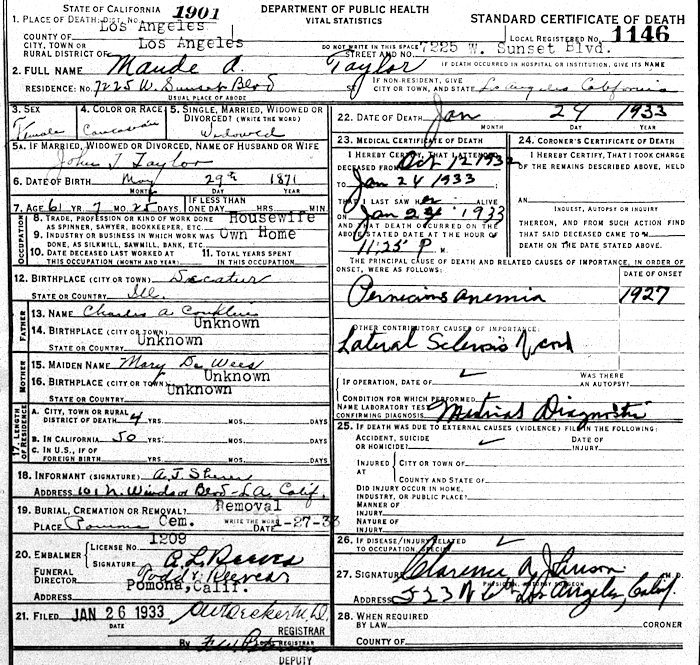 STATE OF CALIFORNIA
DEPARTMENT OF PUBLIC HEALTH
VITAL STATISTICS
STANDARD CERTIFICATE OF DEATH
1. PLACE OF DEATH: DIST. NO. 1901
LOCAL REGISTERED NO. 1146
COUNTY OF Los Angeles
CITY, TOWN OR RURAL DISTRICT OF Los Angeles
DO NOT WRITE IN THIS SPACE
STREET AND NO. 7225 W. Sunset Blvd.
IF DEATH OCCURRED IN HOSPITAL OR INSTITUTION, GIVE ITS NAME
2. FULL NAME Maude A. Taylor
RESIDENCE: NO. 7225 W. Sunset Blvd
USUAL PLACE OF ABODE
IF NON-RESIDENT, GIVE CITY OR TOWN, AND STATE Los Angeles California
3. SEX Female
4. COLOR OR RACE Caucasian
5. SINGLE, MARRIED, WIDOWED OR DIVORCED? (WRITE THE WORD) Widowed
5A. IF MARRIED, WIDOWED OR DIVORCED, NAME OF HUSBAND OR WIFE
John T Taylor
6. DATE OF BIRTH May 29th 1871
MONTH DAY YEAR
7. AGE 61 YR. 7 MO. 25 DAYS
IF LESS THAN ONE DAY HRS. MIN.
OCCUPATION
8. TRADE, PROFESSION OR KIND OF WORK DONE AS SPINNER, SAWYER, BOOKKEEPER, ETC. Housewife
9. INDUSTRY OR BUSINESS IN WHICH WORK WAS DONE, AS SILKMILL, SAWMILL, BANK, ETC. Own Home
10. DATE DECEASED LAST WORKED AT THIS OCCUPATION (MONTH AND YEAR)
11. TOTAL YEARS SPENT IN THIS OCCUPATION
12. BIRTHPLACE (CITY OR TOWN) Decatur
STATE OR COUNTRY Ill.
FATHER
13. NAME Charles A Conklin
14. BIRTHPLACE (CITY OR TOWN) Unknown
STATE OR COUNTRY Unknown
MOTHER
15. MAIDEN NAME Mary De Wees
16. BIRTHPLACE (CITY OR TOWN) Unknown
STATE OR COUNTRY Unknown
17. LENGTH OF RESIDENCE
A. CITY, TOWN OR RURAL DISTRICT OF DEATH 4 YRS. MOS. DAYS
B. IN CALIFORNIA 50 YRS. MOS. DAYS
C. IN U.S., IF OF FOREIGN BIRTH YRS. MOS. DAYS
18. INFORMANT (SIGNATURE) A. J.
ADDRESS 101 N. Windsor Blvd - L.A. Calif.
19. BURIAL, CREMATION OR REMOVAL? Removal
WRITE THE WORD
PLACE Pomona Cem. DATE 1-27-33
20. EMBALMER LICENSE NO. 1209
SIGNATURE A. L. Reeves
FUNERAL DIRECTOR Todd & Reeves
ADDRESS Pomona, Calif.
21. FILED JAN 26 1933
DATE
REGISTRAR
BY
REGISTRAR
DEPUTY
22. DATE OF DEATH Jan 24 1933
MONTH DAY YEAR
23. MEDICAL CERTIFICATE OF DEATH
I HEREBY CERTIFY, THAT I ATTENDED DECEASED FROM Oct 12 1932
TO Jan 24 1933
THAT I LAST SAW HER ALIVE
ON Jan 24 1933
AND THAT DEATH OCCURRED ON THE ABOVE STATED DATE AT THE HOUR OF 11:25 P. M.
24. CORONER'S CERTIFICATE OF DEATH
I HEREBY CERTIFY, THAT I TOOK CHARGE OF THE REMAINS DESCRIBED ABOVE, HELD
AN
INQUEST, AUTOPSY OR INQUIRY
THEREON, AND FROM SUCH ACTION FIND THAT SAID DECEASED CAME TO H DEATH ON THE DATE STATED ABOVE.
THE PRINCIPAL CAUSE OF DEATH AND RELATED CAUSES OF IMPORTANCE, IN ORDER OF ONSET, WERE AS FOLLOWS:
DATE OF ONSET
Pernicious anemia 1927
OTHER CONTRIBUTORY CAUSES OF IMPORTANCE:
Lateral Sclerosis of cord
IF OPERATION, DATE OF
WAS THERE AN AUTOPSY?
CONDITION FOR WHICH PERFORMED
NAME LABORATORY TEST CONFIRMING DIAGNOSIS
25. IF DEATH WAS DUE TO EXTERNAL CAUSES (VIOLENCE) FILL IN THE FOLLOWING:
ACCIDENT, SUICIDE OR HOMICIDE?
DATE OF INJURY
INJURED AT CITY OR TOWN OF
COUNTY AND STATE OF
DID INJURY OCCUR IN HOME, INDUSTRY, OR PUBLIC PLACE?
MANNER OF INJURY
NATURE OF INJURY
26. IF DISEASE/INJURY RELATED TO OCCUPATION, SPECIFY
27. SIGNATURE Clarence A Johnson
PHYSICIAN, AUTOPSY SURGEON
Los Angeles, Calif.
28. WHEN REQUIRED BY LAW CORONER
COUNTY OF